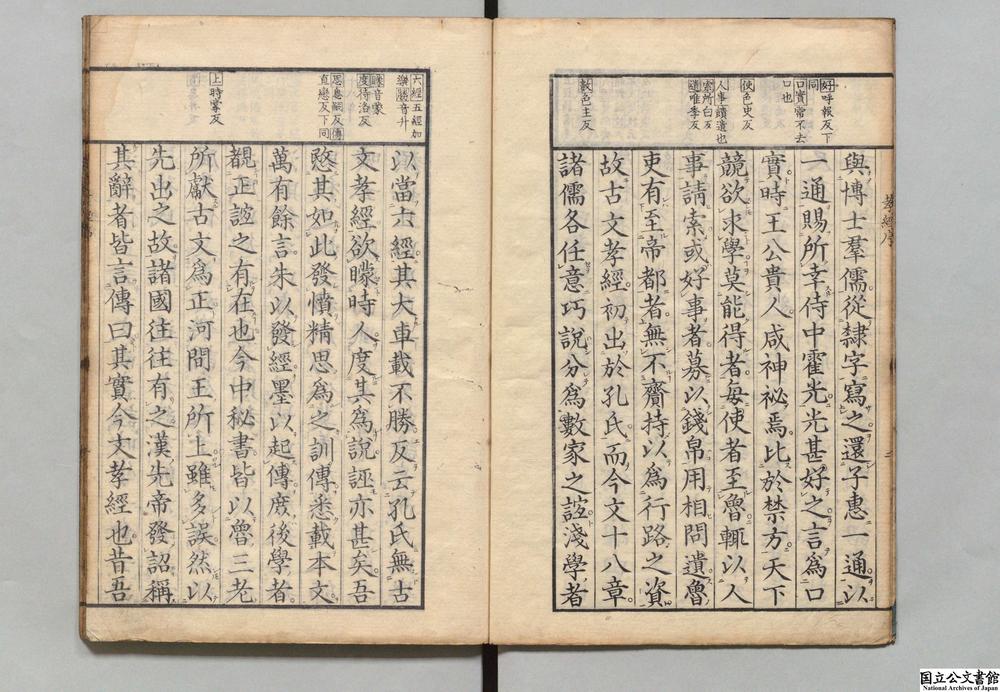 好呼報反下
同
口實常不去
口也
使色史反
人事饋遺也
索所白反
遺唯季反
數色主反
與博士羣儒從隸字寫之還子惠一通以
一通賜所幸侍中霍光光甚好之言爲口
實時王公貴人咸神祕焉比於禁方天下
競欲求學莫能得者每使者至魯輒以人
事請索或好事者募以錢帛用相問遺魯
吏有至帝都者無不齎持以爲行路之資
故古文孝經初出於孔氏而今文十八章
諸儒各任意巧說分爲數家之誼淺學者
孝經序
二
六經五經加
樂勝音升
矇音蒙
度待洛反
思息嗣反傳
直戀反下同
上時掌反
以當六經其大車載不勝反云孔氏無古
文孝經欲矇時人度其爲說誣亦甚矣吾
愍其如此發憤精思爲之訓傳悉載本文
萬有餘言朱以發經墨以起傳庶後學者
覩正誼之有在也今中秘書皆以魯三老
所獻古文爲正河間王所上雖多誤然以
先出之故諸國往往有之漢先帝發詔稱
其辭者皆言傳曰其實今文孝經也昔吾
国立公文書館
National Archives of Japan